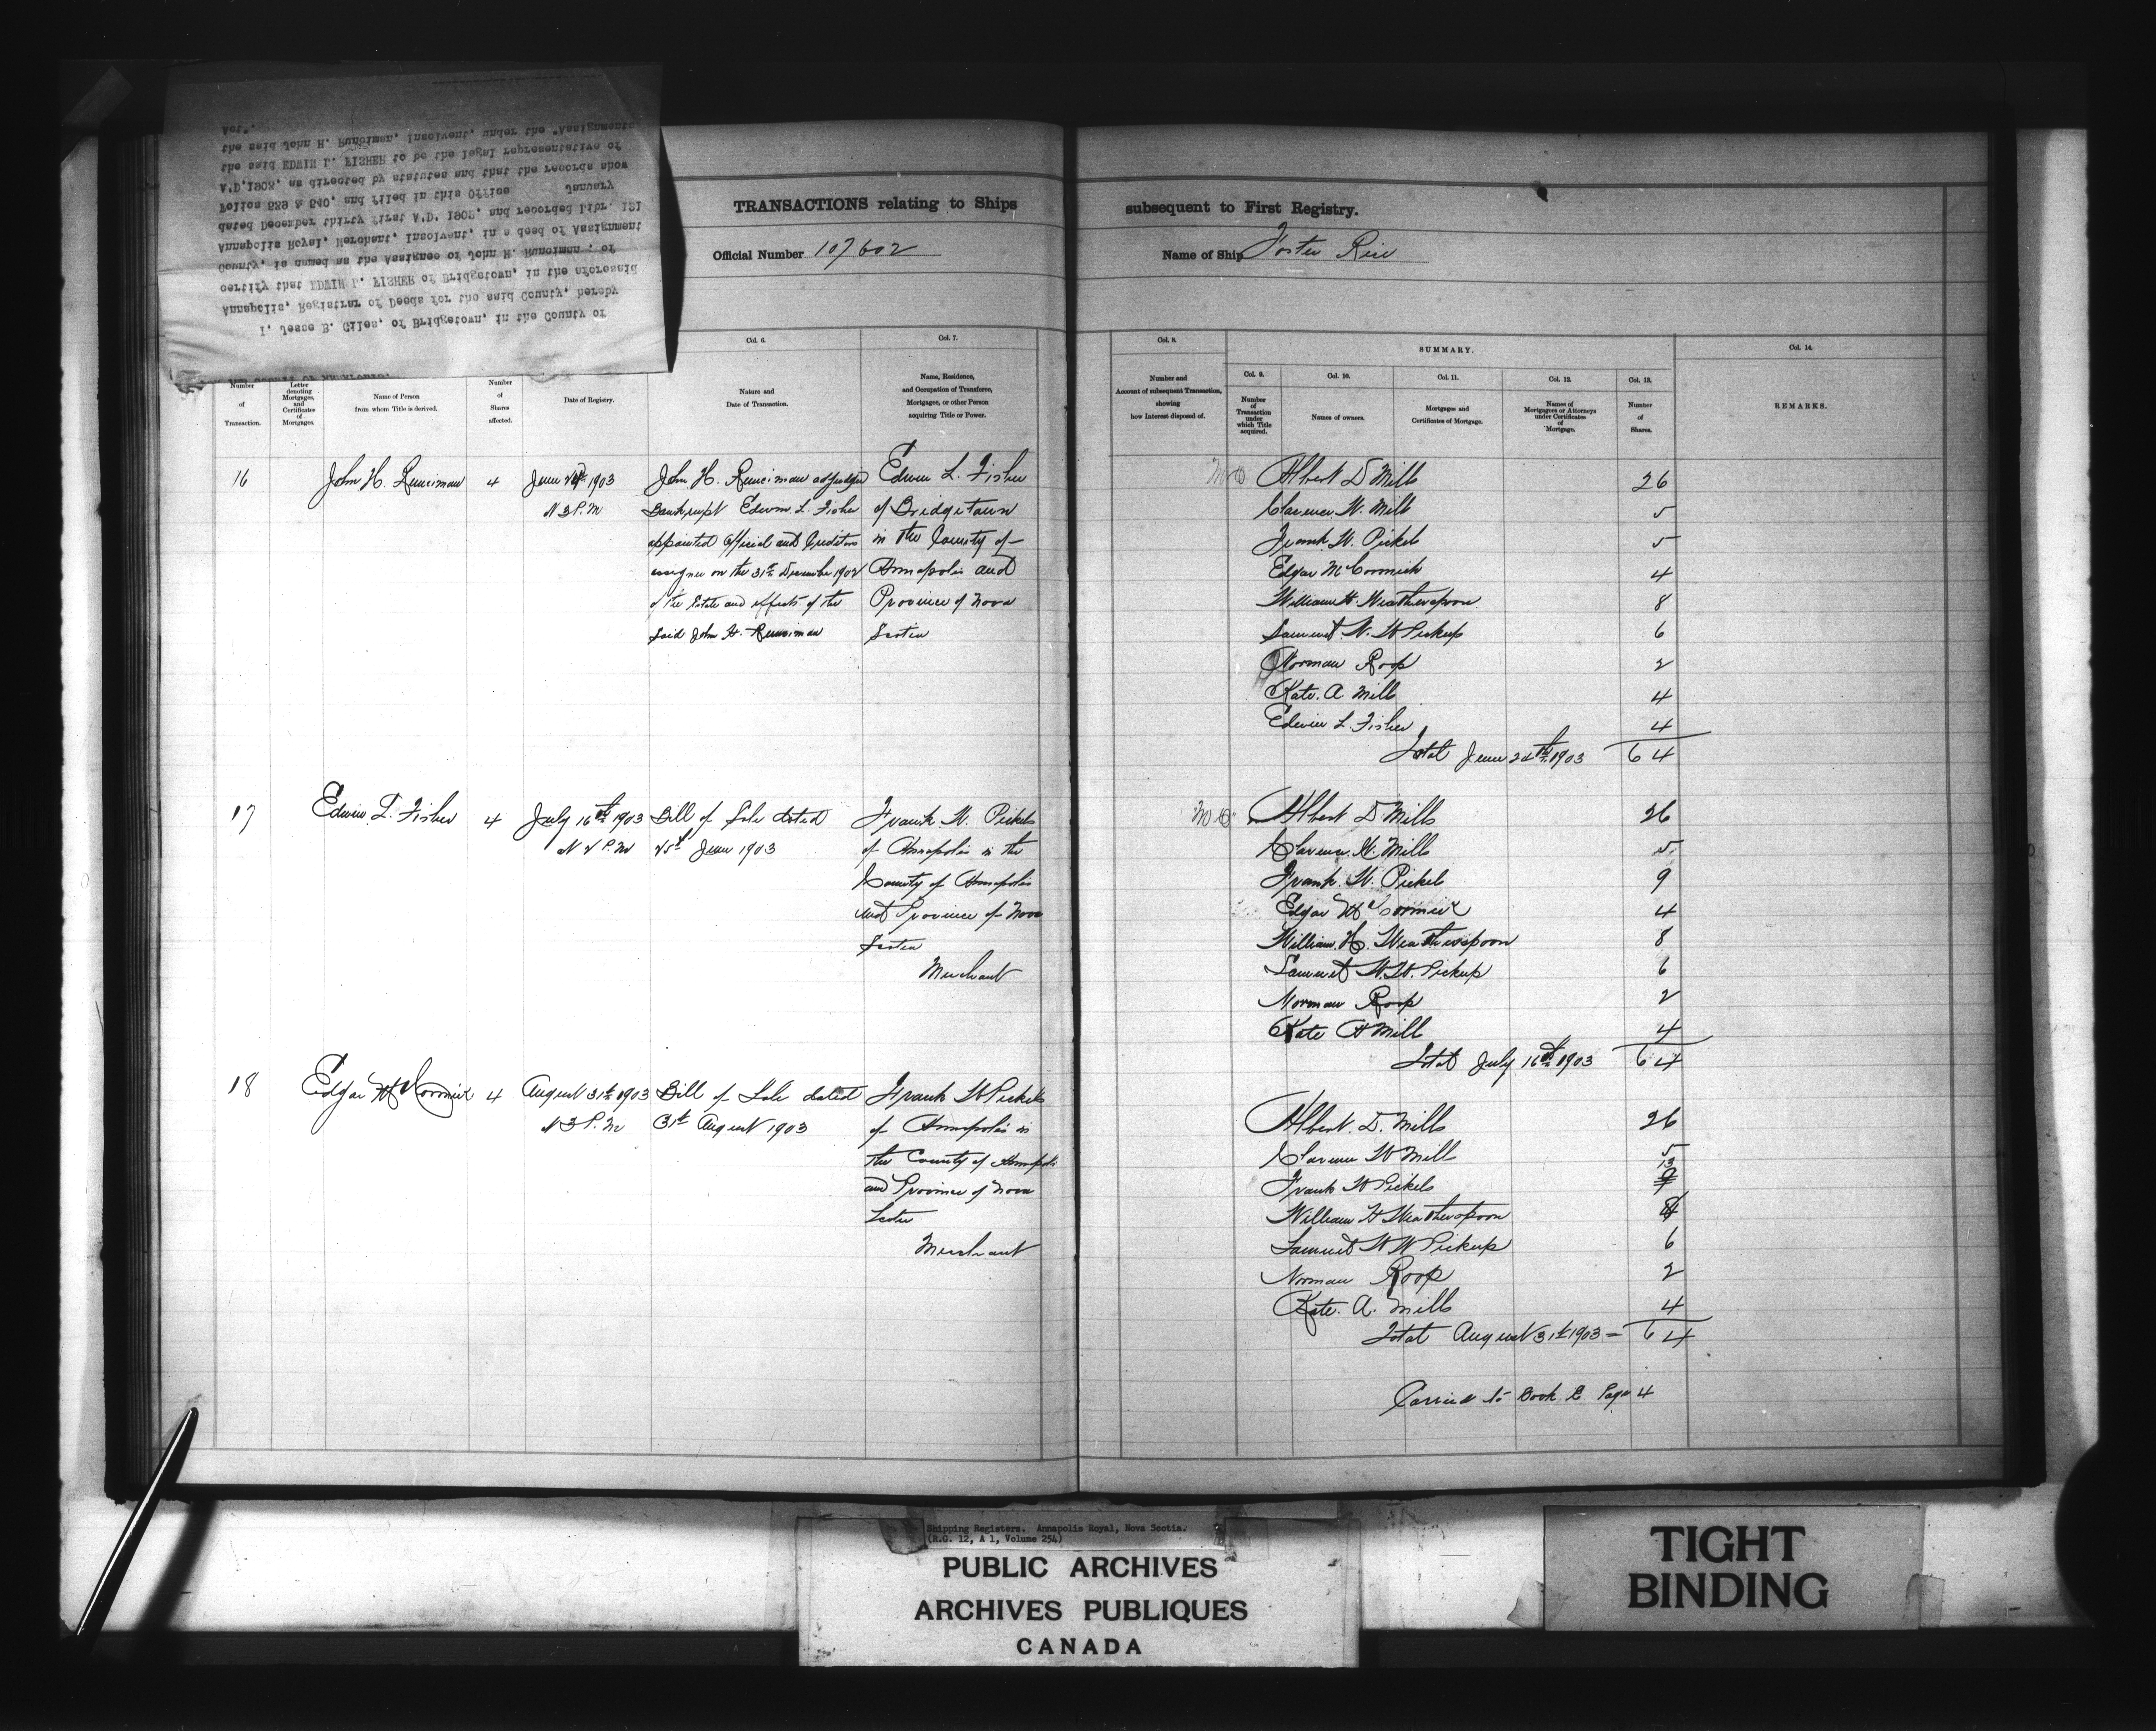 I, Jesse B. Giles, of Bridgetown, in the County of
Annapolis, Registrar of Deeds for the said County, hereby
certify that EDWIN L. FISHER of Bridgetown, in the aforesaid
County, is named as the Assignee of John H. Runciman, of
Annapolis Royal, Merchant, Insolvent, in a deed of Assignment
dated December thirty first A.D. 1902, and recorded Libr. 131
Folios 539 & 540, and filed in this Office January
A.D. 1903, as directed by statutes and that the records show
the said EDWIN L. FISHER to be the legal representative of
the said John H. Runciman, Insolvent, under the "Assignments
Act".
TRANSACTIONS relating to Ships subsequent to First Registry.
Official Number 107602 Name of Ship Foster Rice
Col. 6. Col. 7. Col. 8. SUMMARY. Col. 14.
Col. 9. Col. 10. Col. 11. Col. 12. Col. 13.
Number of Transaction.
Letter denoting Mortgages, and Certificates of Mortgages.
Name of Person from whom Title is derived.
Number of Shares affected.
Date of Registry.
Nature and Date of Transaction.
Name, Residence, and Occupation of Transferee, Mortgagee, or other Person acquiring Title or Power.
Number and Account of subsequent Transaction, showing how Interest disposed of.
Number of Transaction under which Title acquired.
Names of owners.
Mortgages and Certificates of Mortgage.
Names of Mortgagees or Attorneys under Certificates of Mortgage.
Number of Shares.
REMARKS.
16 John H. Runciman 4 June 24th 1903 John H. Runciman adjudged Edwin L. Fisher
3 P.M Bankrupt Edwin L. Fisher of Bridgetown
appointed Official and Creditors in the County of
assignee on the 31st December 1902 Annapolis and
of the Estate and effects of the Province of Nova
Said John H. Runciman Scotia
Albert D Mills 26
Clarence W. Mills 5
Frank W. Pickels 5
Edgar McCormick 4
William H. Weatherspoon 8
Samuel W. W Pickup 6
Norman Roop 2
Kate. A. Mills 4
Edwin L. Fisher 4
Total June 24th 1903 64
17 Edwin L. Fisher 4 July 16th 1903 Bill of Sale dated Frank W. Pickels
2 P.M 25th June 1903 of Annapolis in the
County of Annapolis
and Province of Nova
Scotia
Merchant
Albert D Mills 26
Clarence W. Mills 5
Frank. W. Pickels 9
Edgar McCormick 4
William. H. Weatherspoon 8
Samuel W. W. Pickup 6
Norman Roop 2
Kate A Mills 4
Total July 16th 1903 64
18 Edgar McCormick 4 August 31st 1903 Bill of Sale dated Frank W Pickels
3 P.M 31st August 1903 of Annapolis in
the County of Annapolis
and Province of Nova
Scotia
Merchant
Albert. D. Mills 26
Clarence W Mills 5
Frank W Pickels 13
William H Weatherspoon 8
Samuel W W Pickup 6
Norman Roop 2
Kate. A. Mills 4
Total August 31st 1903 - 64
Carried to Book E. Page 4
Shipping Registers. Annapolis Royal, Nova Scotia.
(R.G. 12, A 1, Volume 254)
PUBLIC ARCHIVES
ARCHIVES PUBLIQUES
CANADA
TIGHT
BINDING